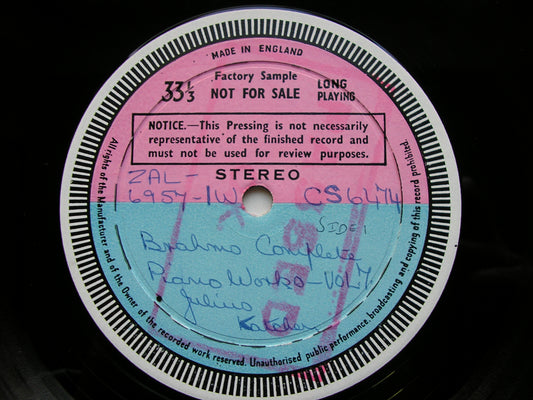 MADE IN ENGLAND
Factory Sample
33 1/3 NOT FOR SALE LONG PLAYING
NOTICE.—This Pressing is not necessarily
representative of the finished record and
must not be used for review purposes.
STEREO
ZAL-
6957-1W CS6474
SIDE 1
Brahms Complete
Piano Works - VOL 7
Julius
Katchen
All rights of the Manufacturer and of the Owner of the recorded work reserved. Unauthorised public performance, broadcasting and copying of this record prohibited.